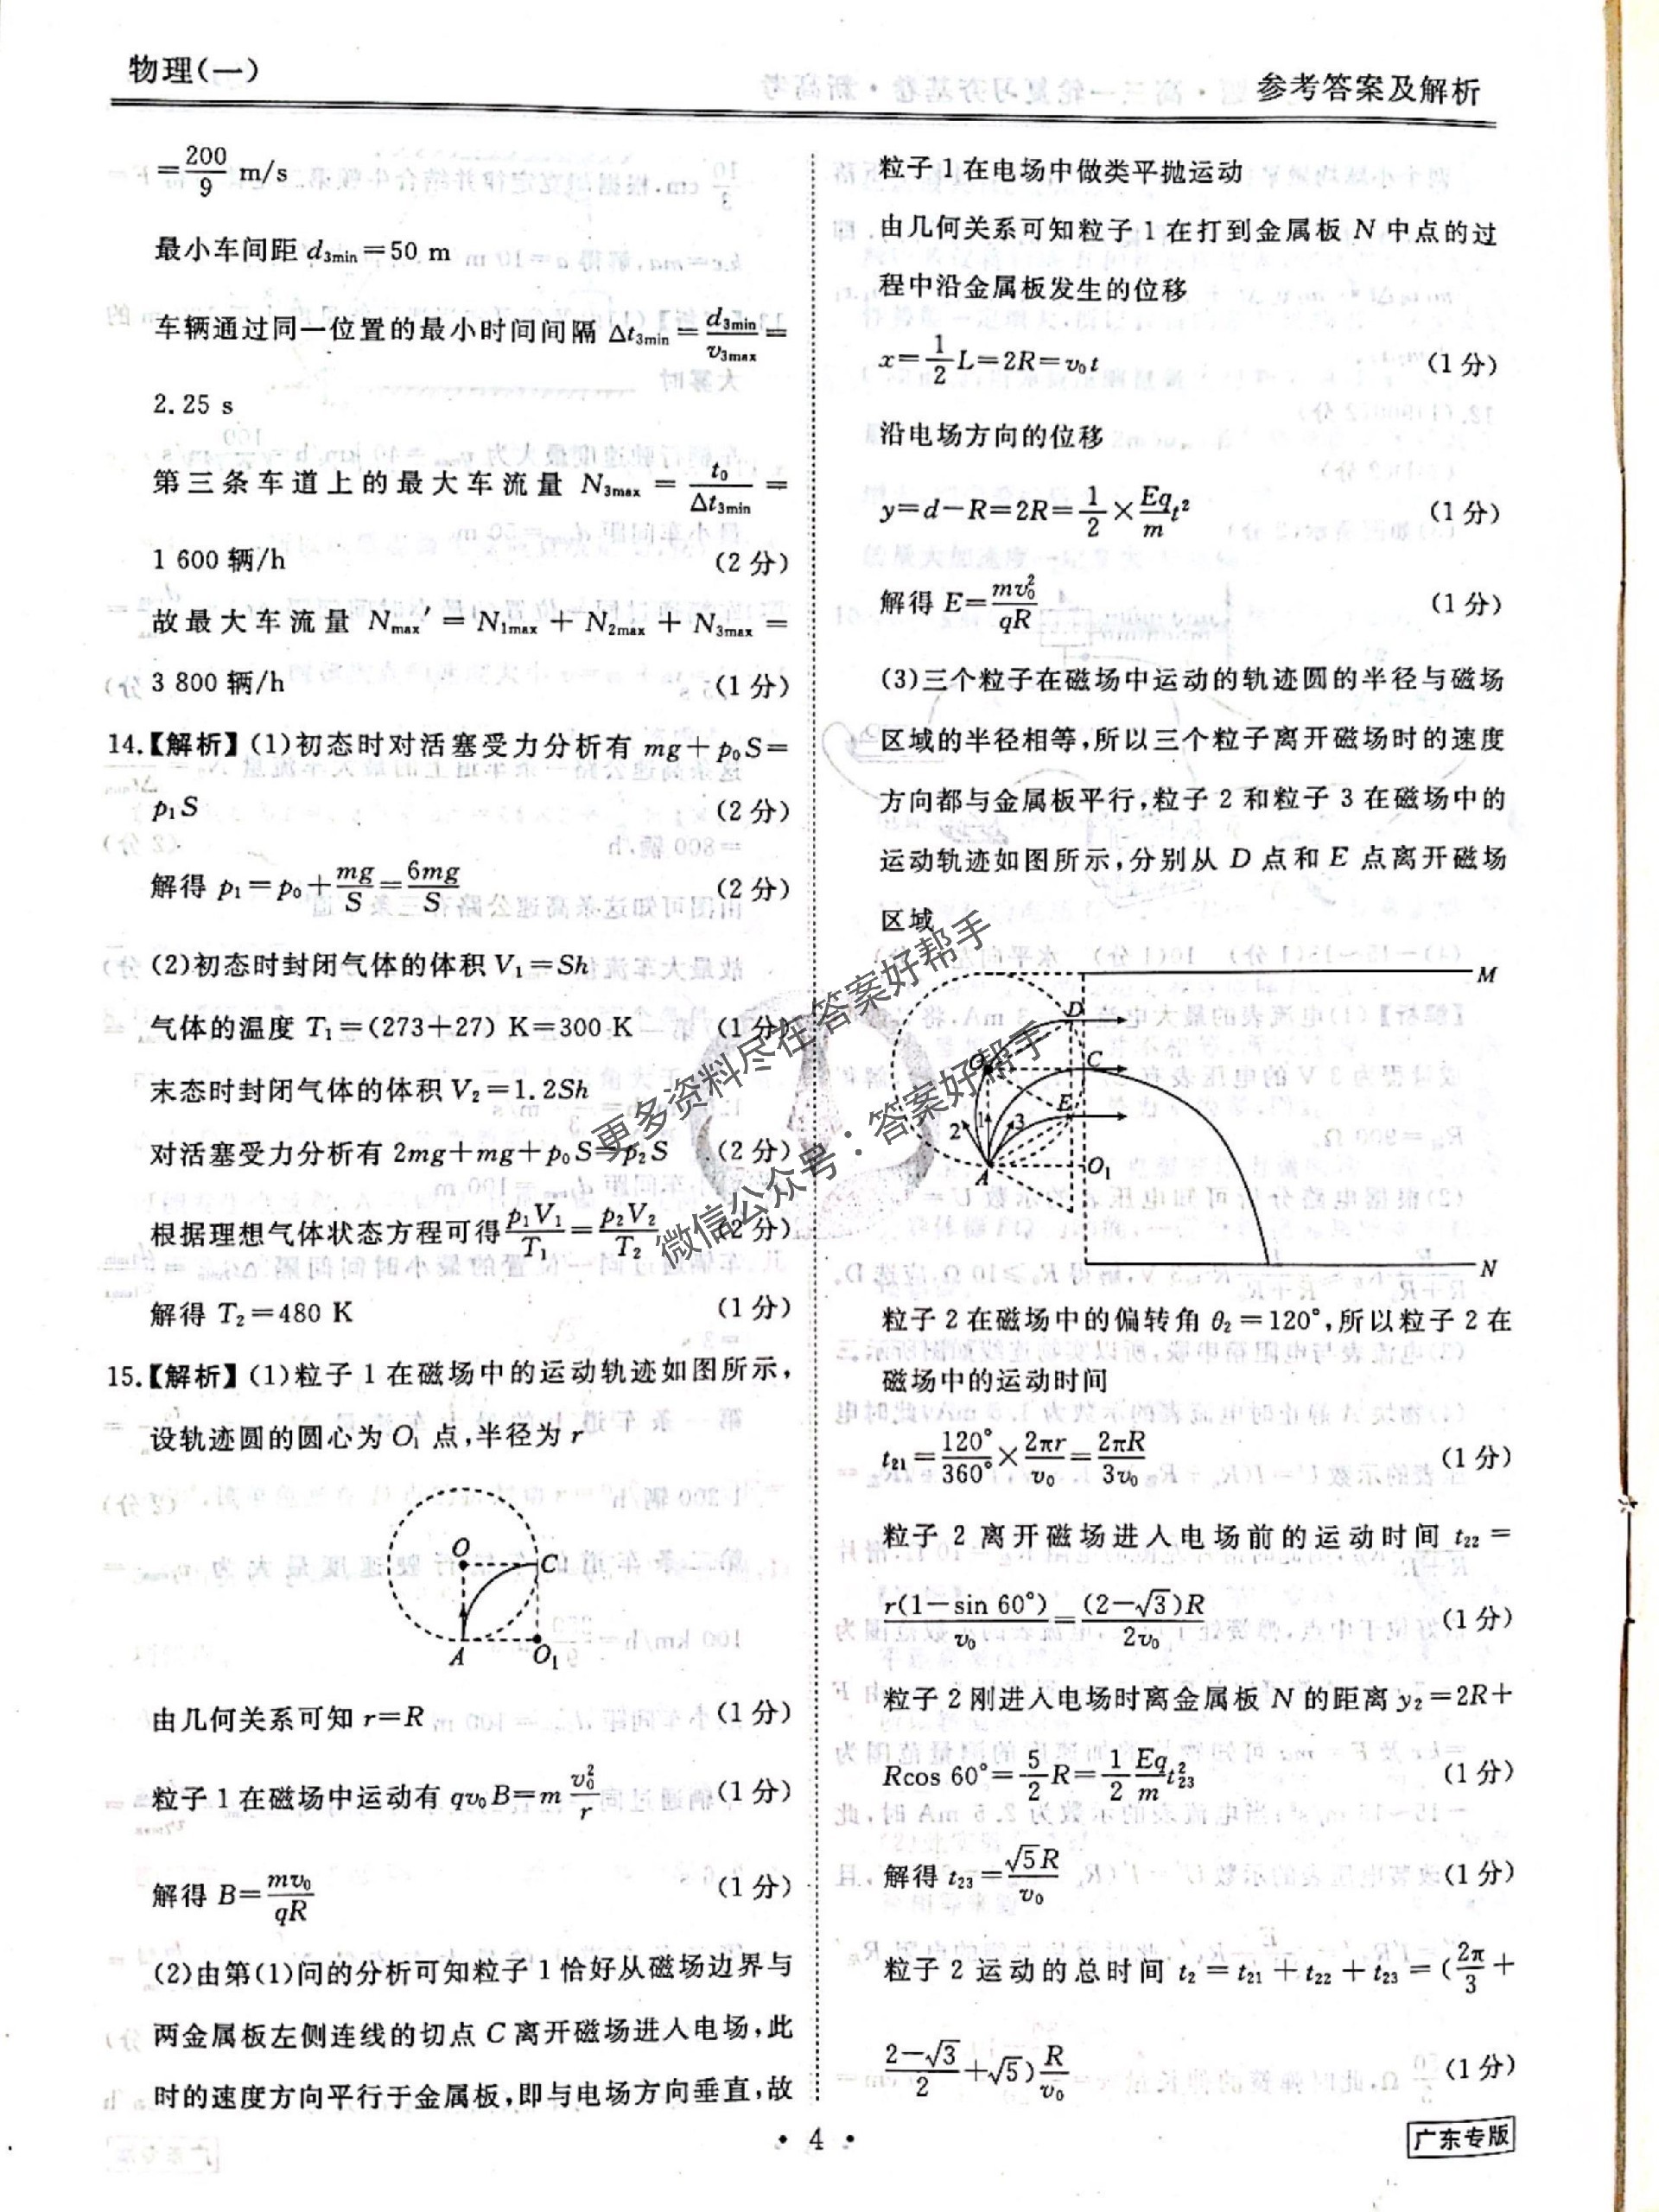 物理(一)
参考答案及解析
=200/9 m/s
最小车间距 d₃min=50 m
车辆通过同一位置的最小时间间隔 Δt₃min=d₃min/v₃max=
2.25 s
第三条车道上的最大车流量 N₃max=t₀/Δt₃min=
1 600 辆/h (2分)
故最大车流量 Nmax′=N₁max+N₂max+N₃max=
3 800 辆/h (1分)
14.【解析】(1)初态时对活塞受力分析有 mg+p₀S=
p₁S (2分)
解得 p₁=p₀+mg/S=6mg/S (2分)
(2)初态时封闭气体的体积 V₁=Sh
气体的温度 T₁=(273+27) K=300 K (1分)
末态时封闭气体的体积 V₂=1.2Sh
对活塞受力分析有 2mg+mg+p₀S=p₂S (2分)
根据理想气体状态方程可得 p₁V₁/T₁=p₂V₂/T₂ (2分)
解得 T₂=480 K (1分)
15.【解析】(1)粒子 1 在磁场中的运动轨迹如图所示,
设轨迹圆的圆心为 O₁ 点,半径为 r
O
C
A
O₁
由几何关系可知 r=R (1分)
粒子 1 在磁场中运动有 qv₀B=m v₀²/r (1分)
解得 B=mv₀/qR (1分)
(2)由第(1)问的分析可知粒子 1 恰好从磁场边界与
两金属板左侧连线的切点 C 离开磁场进入电场,此
时的速度方向平行于金属板,即与电场方向垂直,故
粒子 1 在电场中做类平抛运动
由几何关系可知粒子 1 在打到金属板 N 中点的过
程中沿金属板发生的位移
x=1/2 L=2R=v₀t (1分)
沿电场方向的位移
y=d-R=2R=1/2×Eq/m t² (1分)
解得 E=mv₀²/qR (1分)
(3)三个粒子在磁场中运动的轨迹圆的半径与磁场
区域的半径相等,所以三个粒子离开磁场时的速度
方向都与金属板平行,粒子 2 和粒子 3 在磁场中的
运动轨迹如图所示,分别从 D 点和 E 点离开磁场
区域
M
D
O
C
E
2
1
3
A
O₁
N
粒子 2 在磁场中的偏转角 θ₂=120°,所以粒子 2 在
磁场中的运动时间
t₂₁=120°/360°×2πr/v₀=2πR/3v₀ (1分)
粒子 2 离开磁场进入电场前的运动时间 t₂₂=
r(1-sin 60°)/v₀=(2-√3)R/2v₀ (1分)
粒子 2 刚进入电场时离金属板 N 的距离 y₂=2R+
Rcos 60°=5/2 R=1/2 Eq/m t₂₃² (1分)
解得 t₂₃=√5R/v₀ (1分)
粒子 2 运动的总时间 t₂=t₂₁+t₂₂+t₂₃=(2π/3+
2-√3/2+√5)R/v₀ (1分)
更多资料尽在答案好帮手
微信公众号:答案好帮手
• 4 •
广东专版